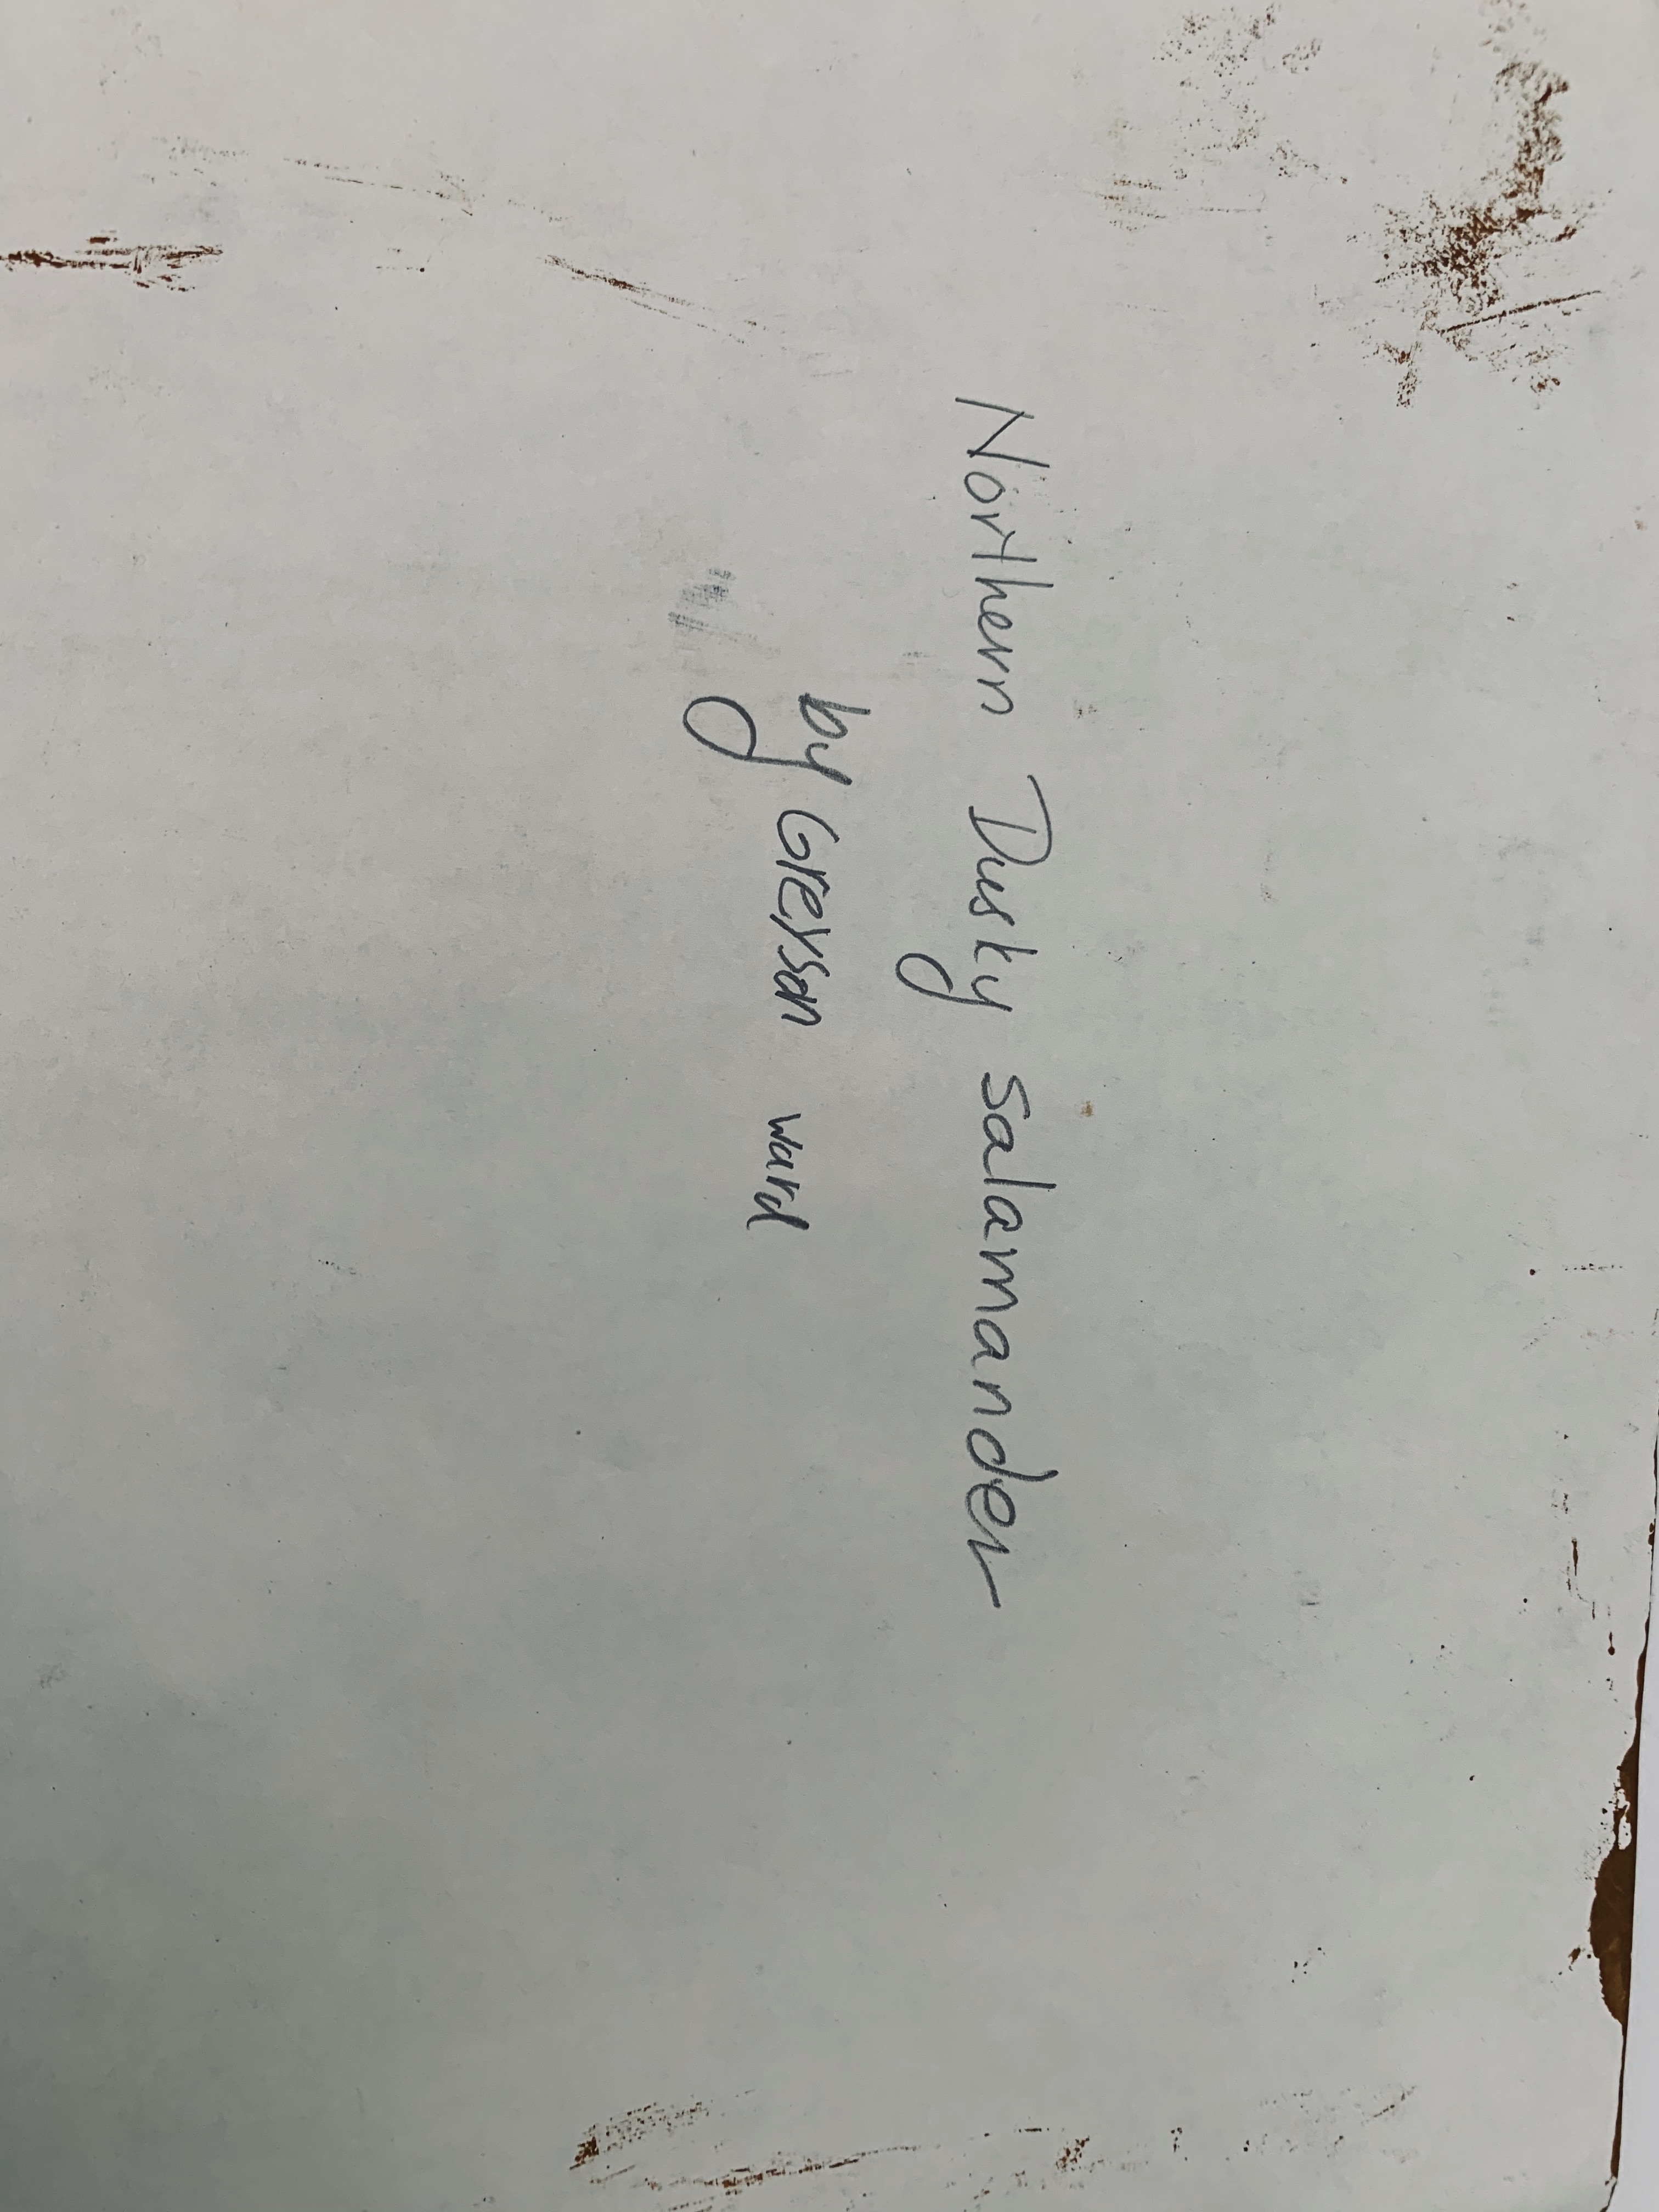 Northern Dusky salamander
by Greyson ward